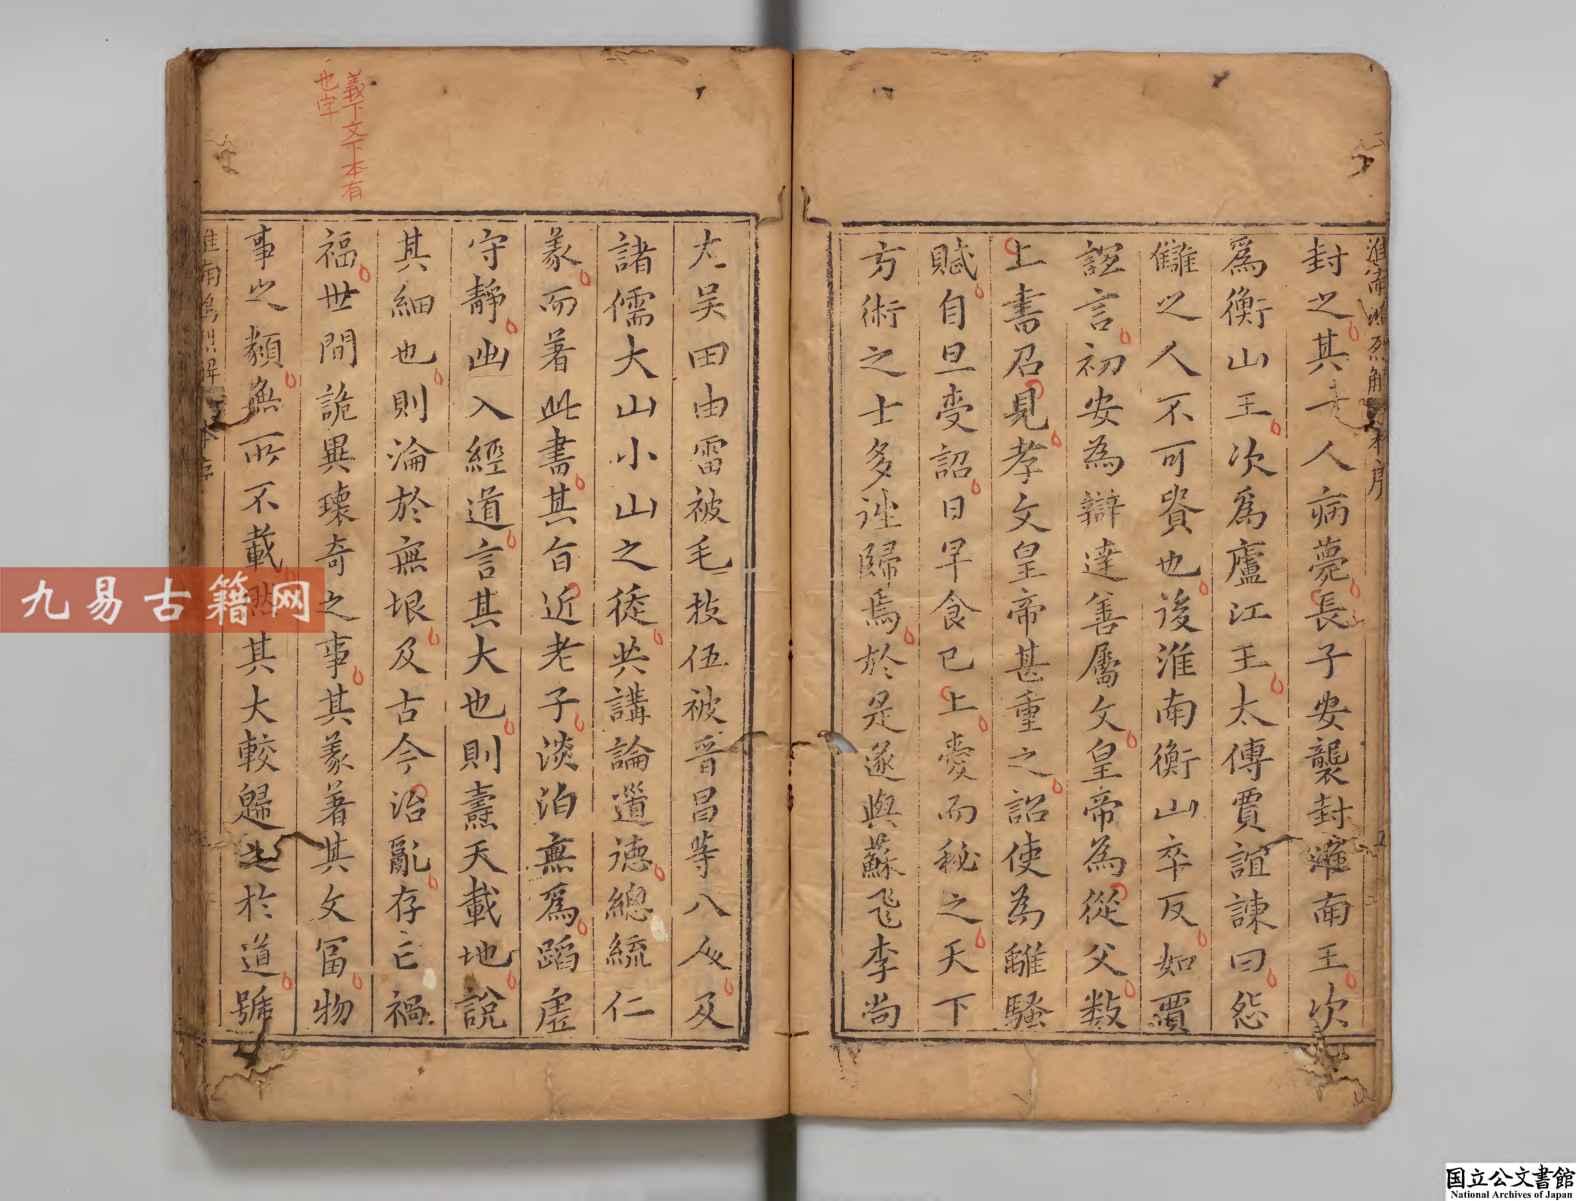 淮南鴻烈解 序
封之其一人病薨長子安襲封淮南王次
爲衡山王次爲廬江王太傅賈誼諫曰怨
讎之人不可貴也後淮南衡山卒反如賈
誼言初安為辯達善屬文皇帝為從父數
上書召見孝文皇帝甚重之詔使為離騷
賦自旦受詔日早食已上愛而秘之天下
方術之士多徃歸焉於是遂與蘇飛李尚
左吴田由雷被毛技伍被晉昌等八人及
諸儒大山小山之徒共講論道德總統仁
義而著此書其旨近老子淡泊無爲蹈虛
守静出入經道言其大也則燾天載地說
其細也則淪於無垠及古今治亂存亡禍
福世間詭異瓌奇之事其義著其文冨物
事之類無所不載然其大較歸之於道號
淮南鴻烈解 序
義下文下本有
也字
九易古籍网
国立公文書館
National Archives of Japan